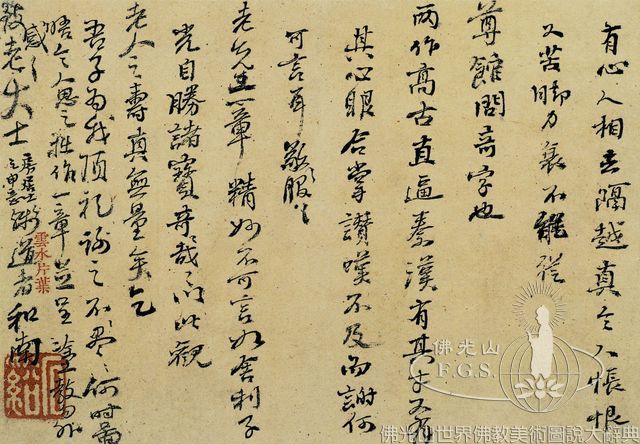 有心人相去隔越真令人悵恨
又苦脚力衰不能從
尊館問奇字也
兩作高古直逼秦漢有其才又有
其心眼合掌讚嘆不及而謝何
可言耶敬服々
老先生一章精妙不可言如舍利子
光自勝諸寶奇哉々以此觀
老人之壽真無量矣乞
吾子為我頂礼謝之不盡々何時面
晤令人思之拙作一章並呈塗教勿外
感々
老大士
道者和南
雲水片葉
佛光山
F.G.S.
佛光山世界佛教美術圖說大辭典